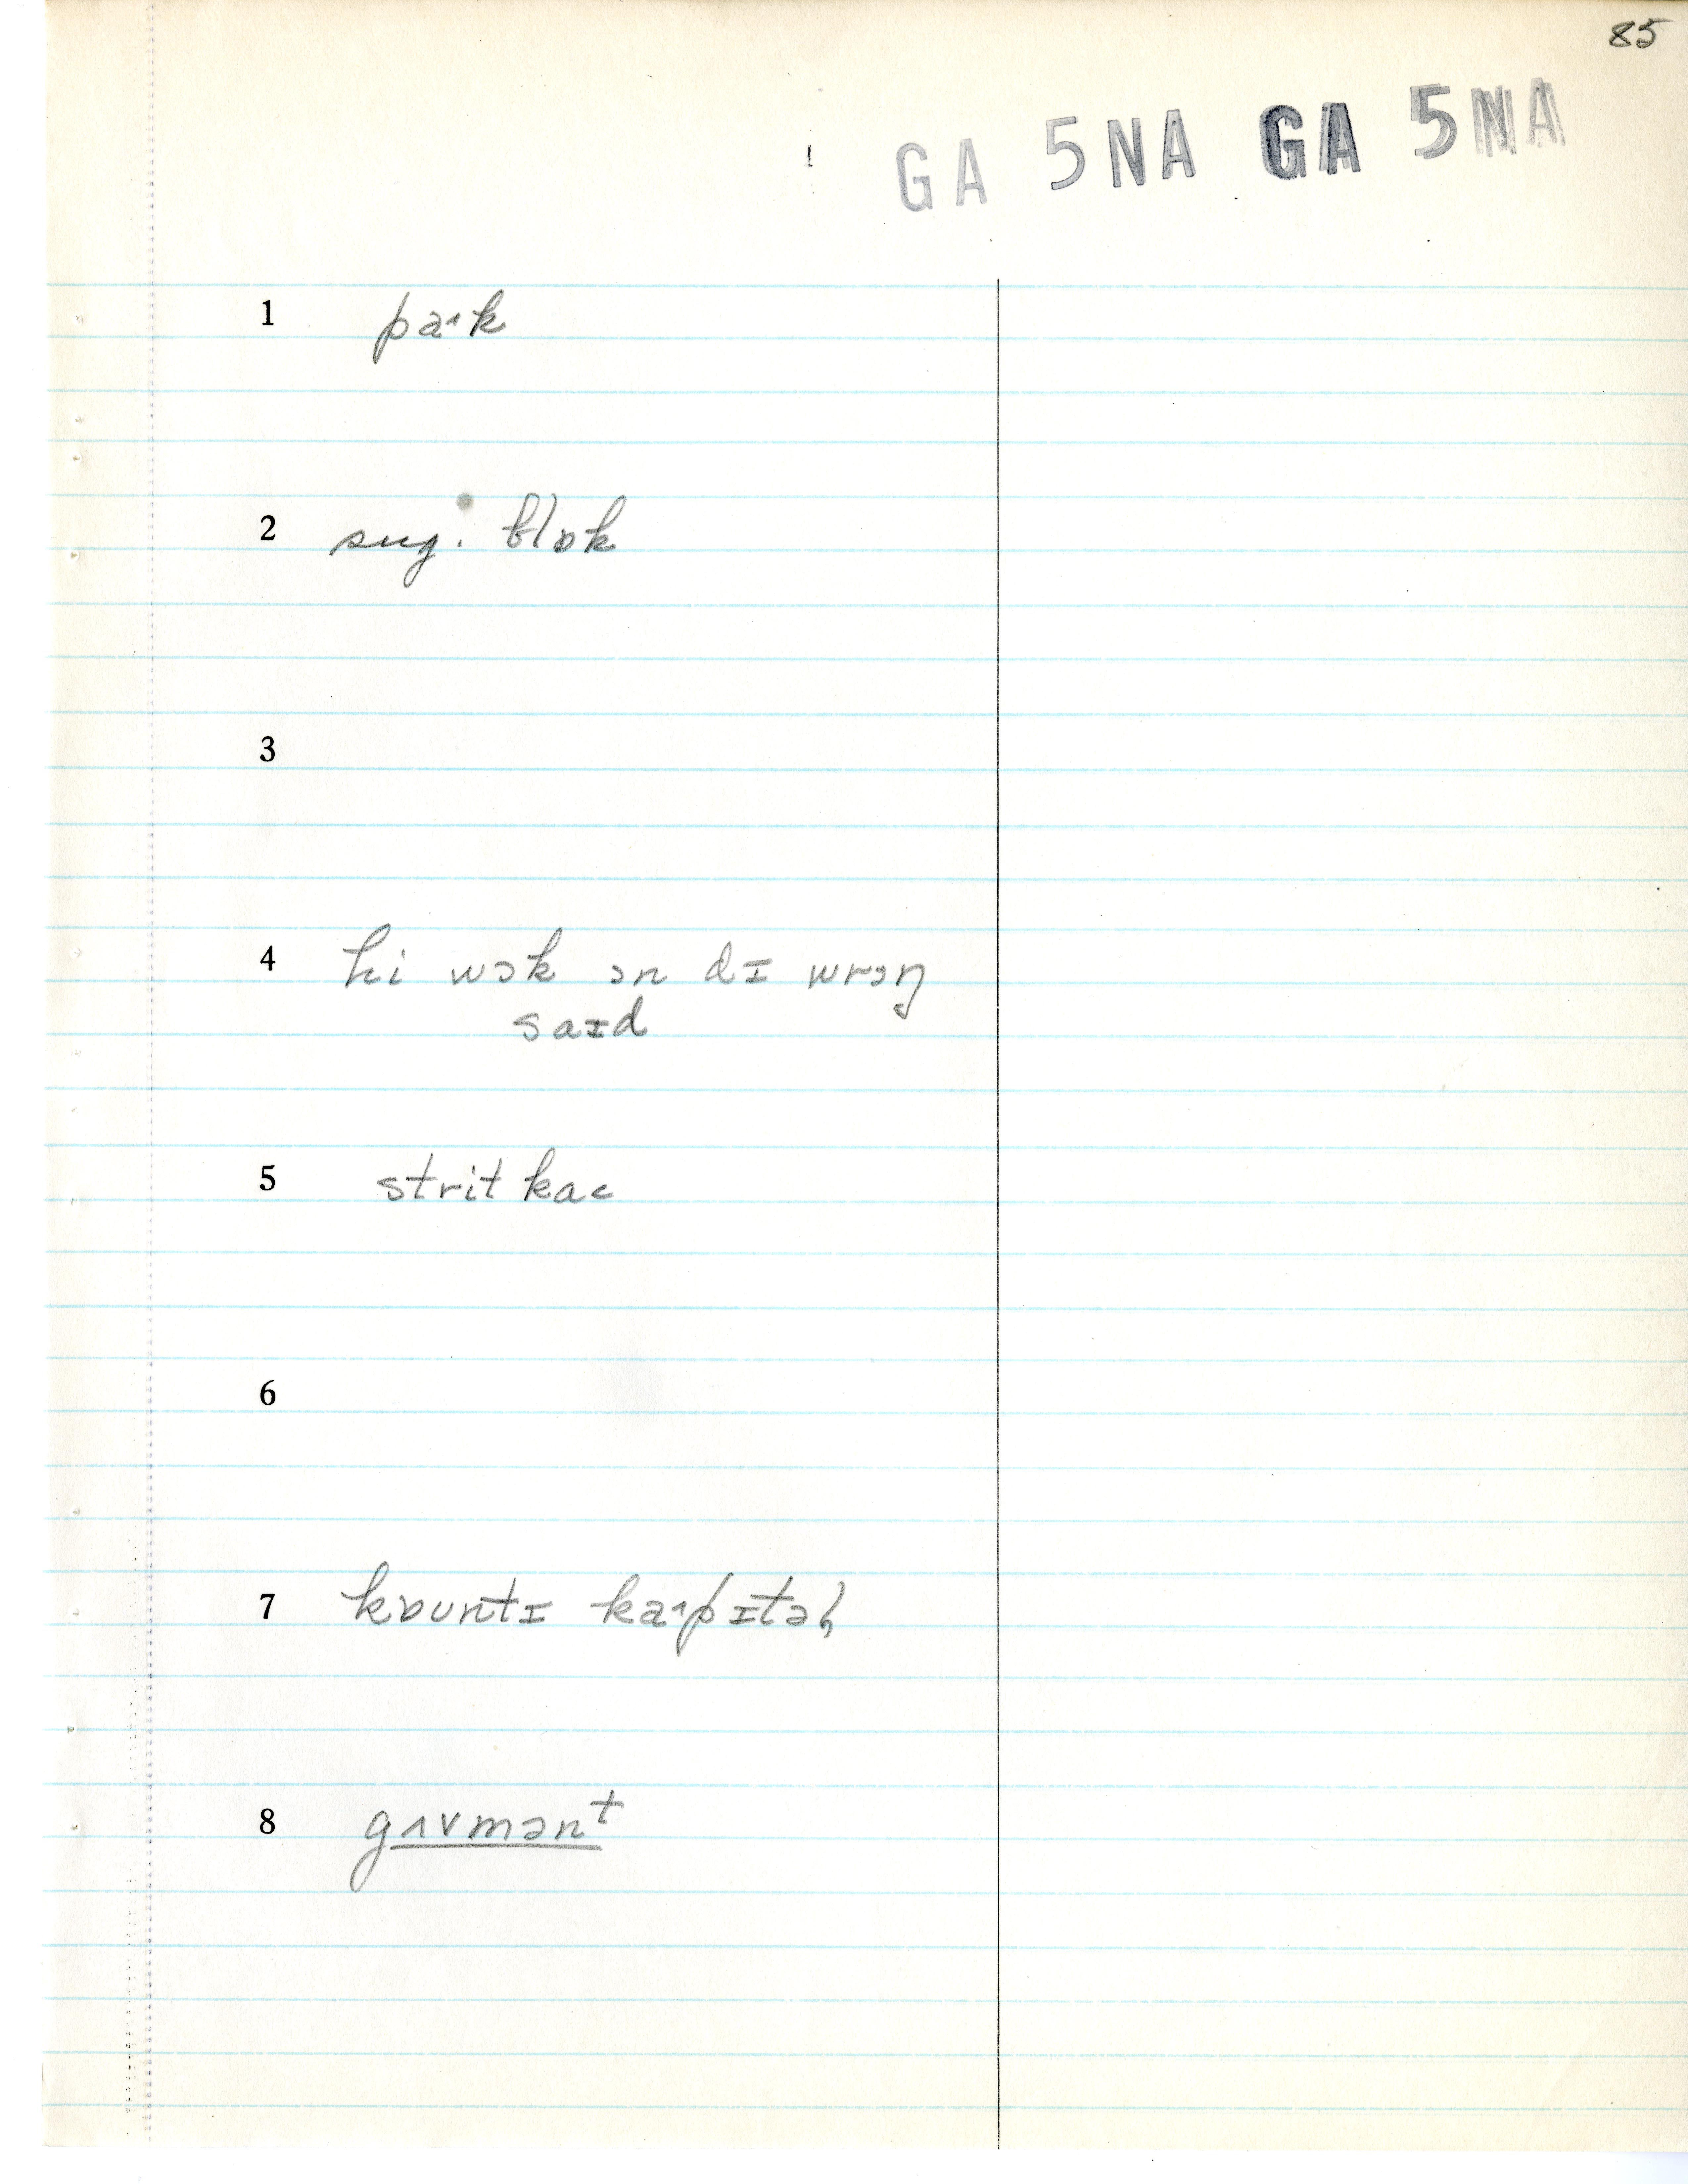 85
GA 5NA GA 5NA
1 pa˞k
2 sug. blɒk
3
4 hi wɔk ɔn dɪ wrɔŋ
saɪd
5 strit kac
6
7 kɒuntɪ ka˞pɪtəɫ
8 gʌvmənᵗ